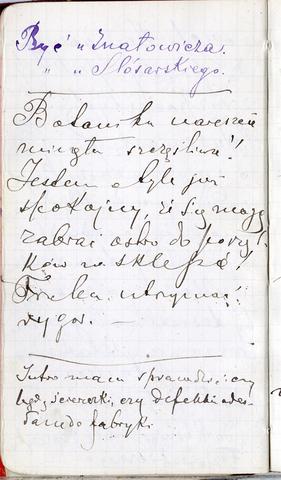 Być u Znatowicza.
" u Ślósarskiego.
nareszcie
minęła szczęśliwie!
Jestem o tyle już
spokojny, iż się mogę
zabrać ostro do porząd-
ków na sklepie!
Trzeba utrzymać
rygor. —
Jutro mam sprawdzić, czy
będą czy defekki ode-
słane do fabryki